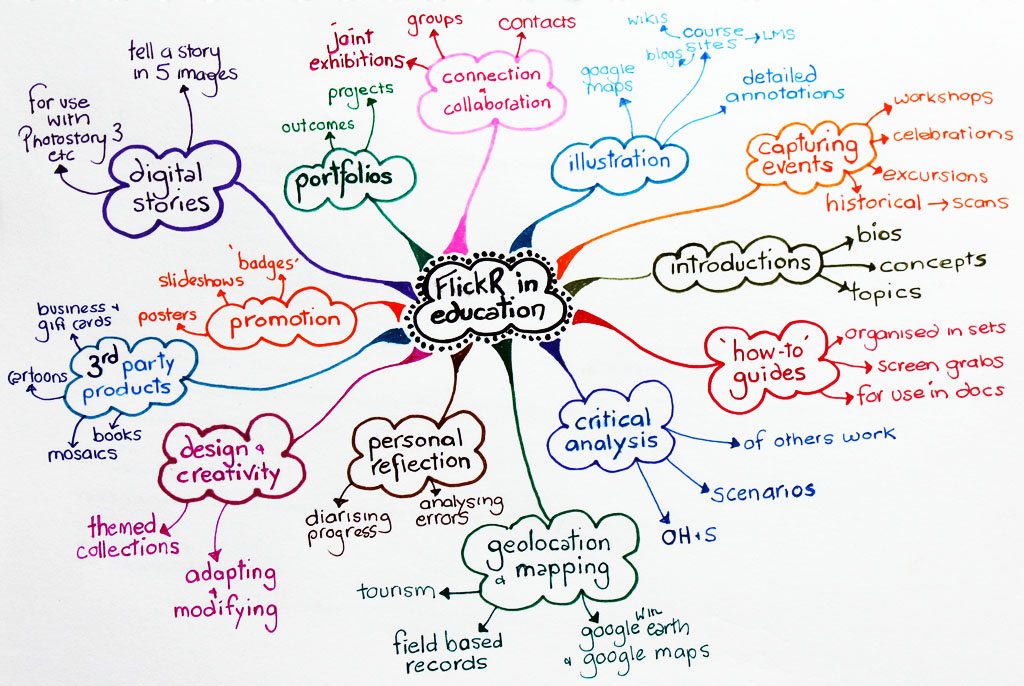 FlickR in
education
connection
&
collaboration
joint
exhibitions
groups
contacts
illustration
google
maps
wikis
blogs
course
sites
LMS
detailed
annotations
capturing
events
workshops
celebrations
excursions
historical → scans
introductions
bios
concepts
topics
'how-to'
guides
organised in sets
screen grabs
for use in docs
critical
analysis
of others work
scenarios
OH+S
geolocation
& mapping
tourism
field based
records
google earth
win
& google maps
personal
reflection
diarising
progress
analysing
errors
design &
creativity
themed
collections
adapting
&
modifying
3rd party
products
business +
gift cards
cartoons
mosaics
books
promotion
posters
slideshows
'badges'
digital
stories
for use
with
Photostory 3
etc
tell a story
in 5 images
portfolios
outcomes
projects